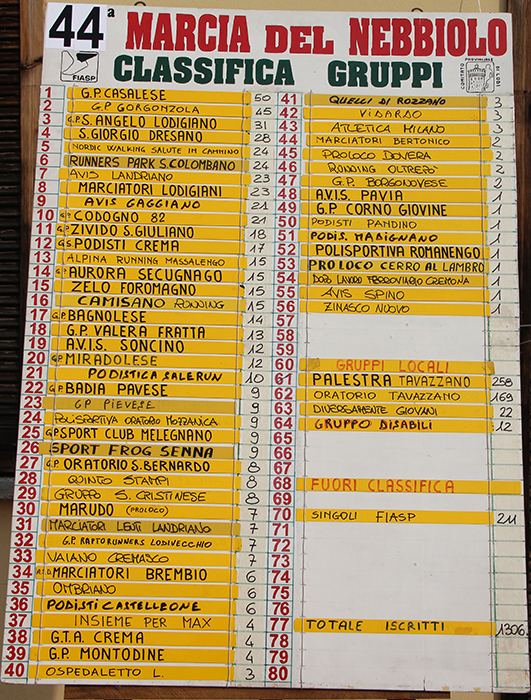 44ª MARCIA DEL NEBBIOLO
FIASP
CLASSIFICA GRUPPI
COMITATO PROVINCIALE LODI
1 G.P. CASALESE 50
2 G.P. GORGONZOLA 45
3 G.P. S. ANGELO LODIGIANO 31
4 S. GIORGIO DRESANO 28
5 NORDIC WALKING SALUTE IN CAMMINO 24
6 RUNNERS PARK S. COLOMBANO 24
7 AVIS LANDRIANO 23
8 MARCIATORI LODIGIANI 23
9 AVIS GAGGIANO 21
10 G.P. CODOGNO 82 21
11 G.P. ZIVIDO S. GIULIANO 18
12 G.S. PODISTI CREMA 17
13 ALPINA RUNNING MASSALENGO 16
14 G.P. AURORA SECUGNAGO 15
15 ZELO FOROMAGNO 15
16 CAMISANO RUNNING 15
17 G.P. BAGNOLESE 14
18 G.P. VALERA FRATTA 13
19 A.V.I.S. SONCINO 12
20 G.P. MIRADOLESE 12
21 PODISTICA SALERUN 10
22 G.P. BADIA PAVESE 9
23 GP PIEVESE 9
24 POLISPORTIVA ORATORIO MOZZANICA 9
25 G.P. SPORT CLUB MELEGNANO 9
26 SPORT FROG SENNA 9
27 G.P. ORATORIO S. BERNARDO 8
28 QUINTO STAMPI 8
29 GRUPPO S. CRISTINESE 8
30 MARUDO (PROLOCO) 7
31 MARCIATORI LENTI LANDRIANO 7
32 G.P. RAPTORUNNERS LODIVECCHIO 7
33 VAIANO CREMASCO 7
34 MARCIATORI BREMBIO 6
35 OMBRIANO 6
36 PODISTI CASTELLEONE 6
37 INSIEME PER MAX 4
38 G.T.A. CREMA 4
39 G.P. MONTODINE 4
40 OSPEDALETTO L. 3
41 QUELLI DI ROZZANO 3
42 VIDARDO 3
43 ATLETICA MILANO 3
44 MARCIATORI BERTONICO 2
45 PROLOCO DOVERA 2
46 RUNNING OLTREPÒ 2
47 G.P. BORGONOVESE 2
48 A.V.I.S. PAVIA 1
49 G.P. CORNO GIOVINE 1
50 PODISTI PANDINO 1
51 PODIS. MADIGNANO 1
52 POLISPORTIVA ROMANENGO 1
53 PRO LOCO CERRO AL LAMBRO 1
54 DOPO LAVORO FERROVIARIO CREMONA 1
55 AVIS SPINO 1
56 ZINASCO NUOVO 1
57
58
59
60 GRUPPI LOCALI
61 PALESTRA TAVAZZANO 258
62 ORATORIO TAVAZZANO 169
63 DIVERSAMENTE GIOVANI 22
64 GRUPPO DISABILI 12
65
66
67
68 FUORI CLASSIFICA
69
70 SINGOLI FIASP 211
71
72
73
74
75
76
77 TOTALE ISCRITTI 1306
78
79
80